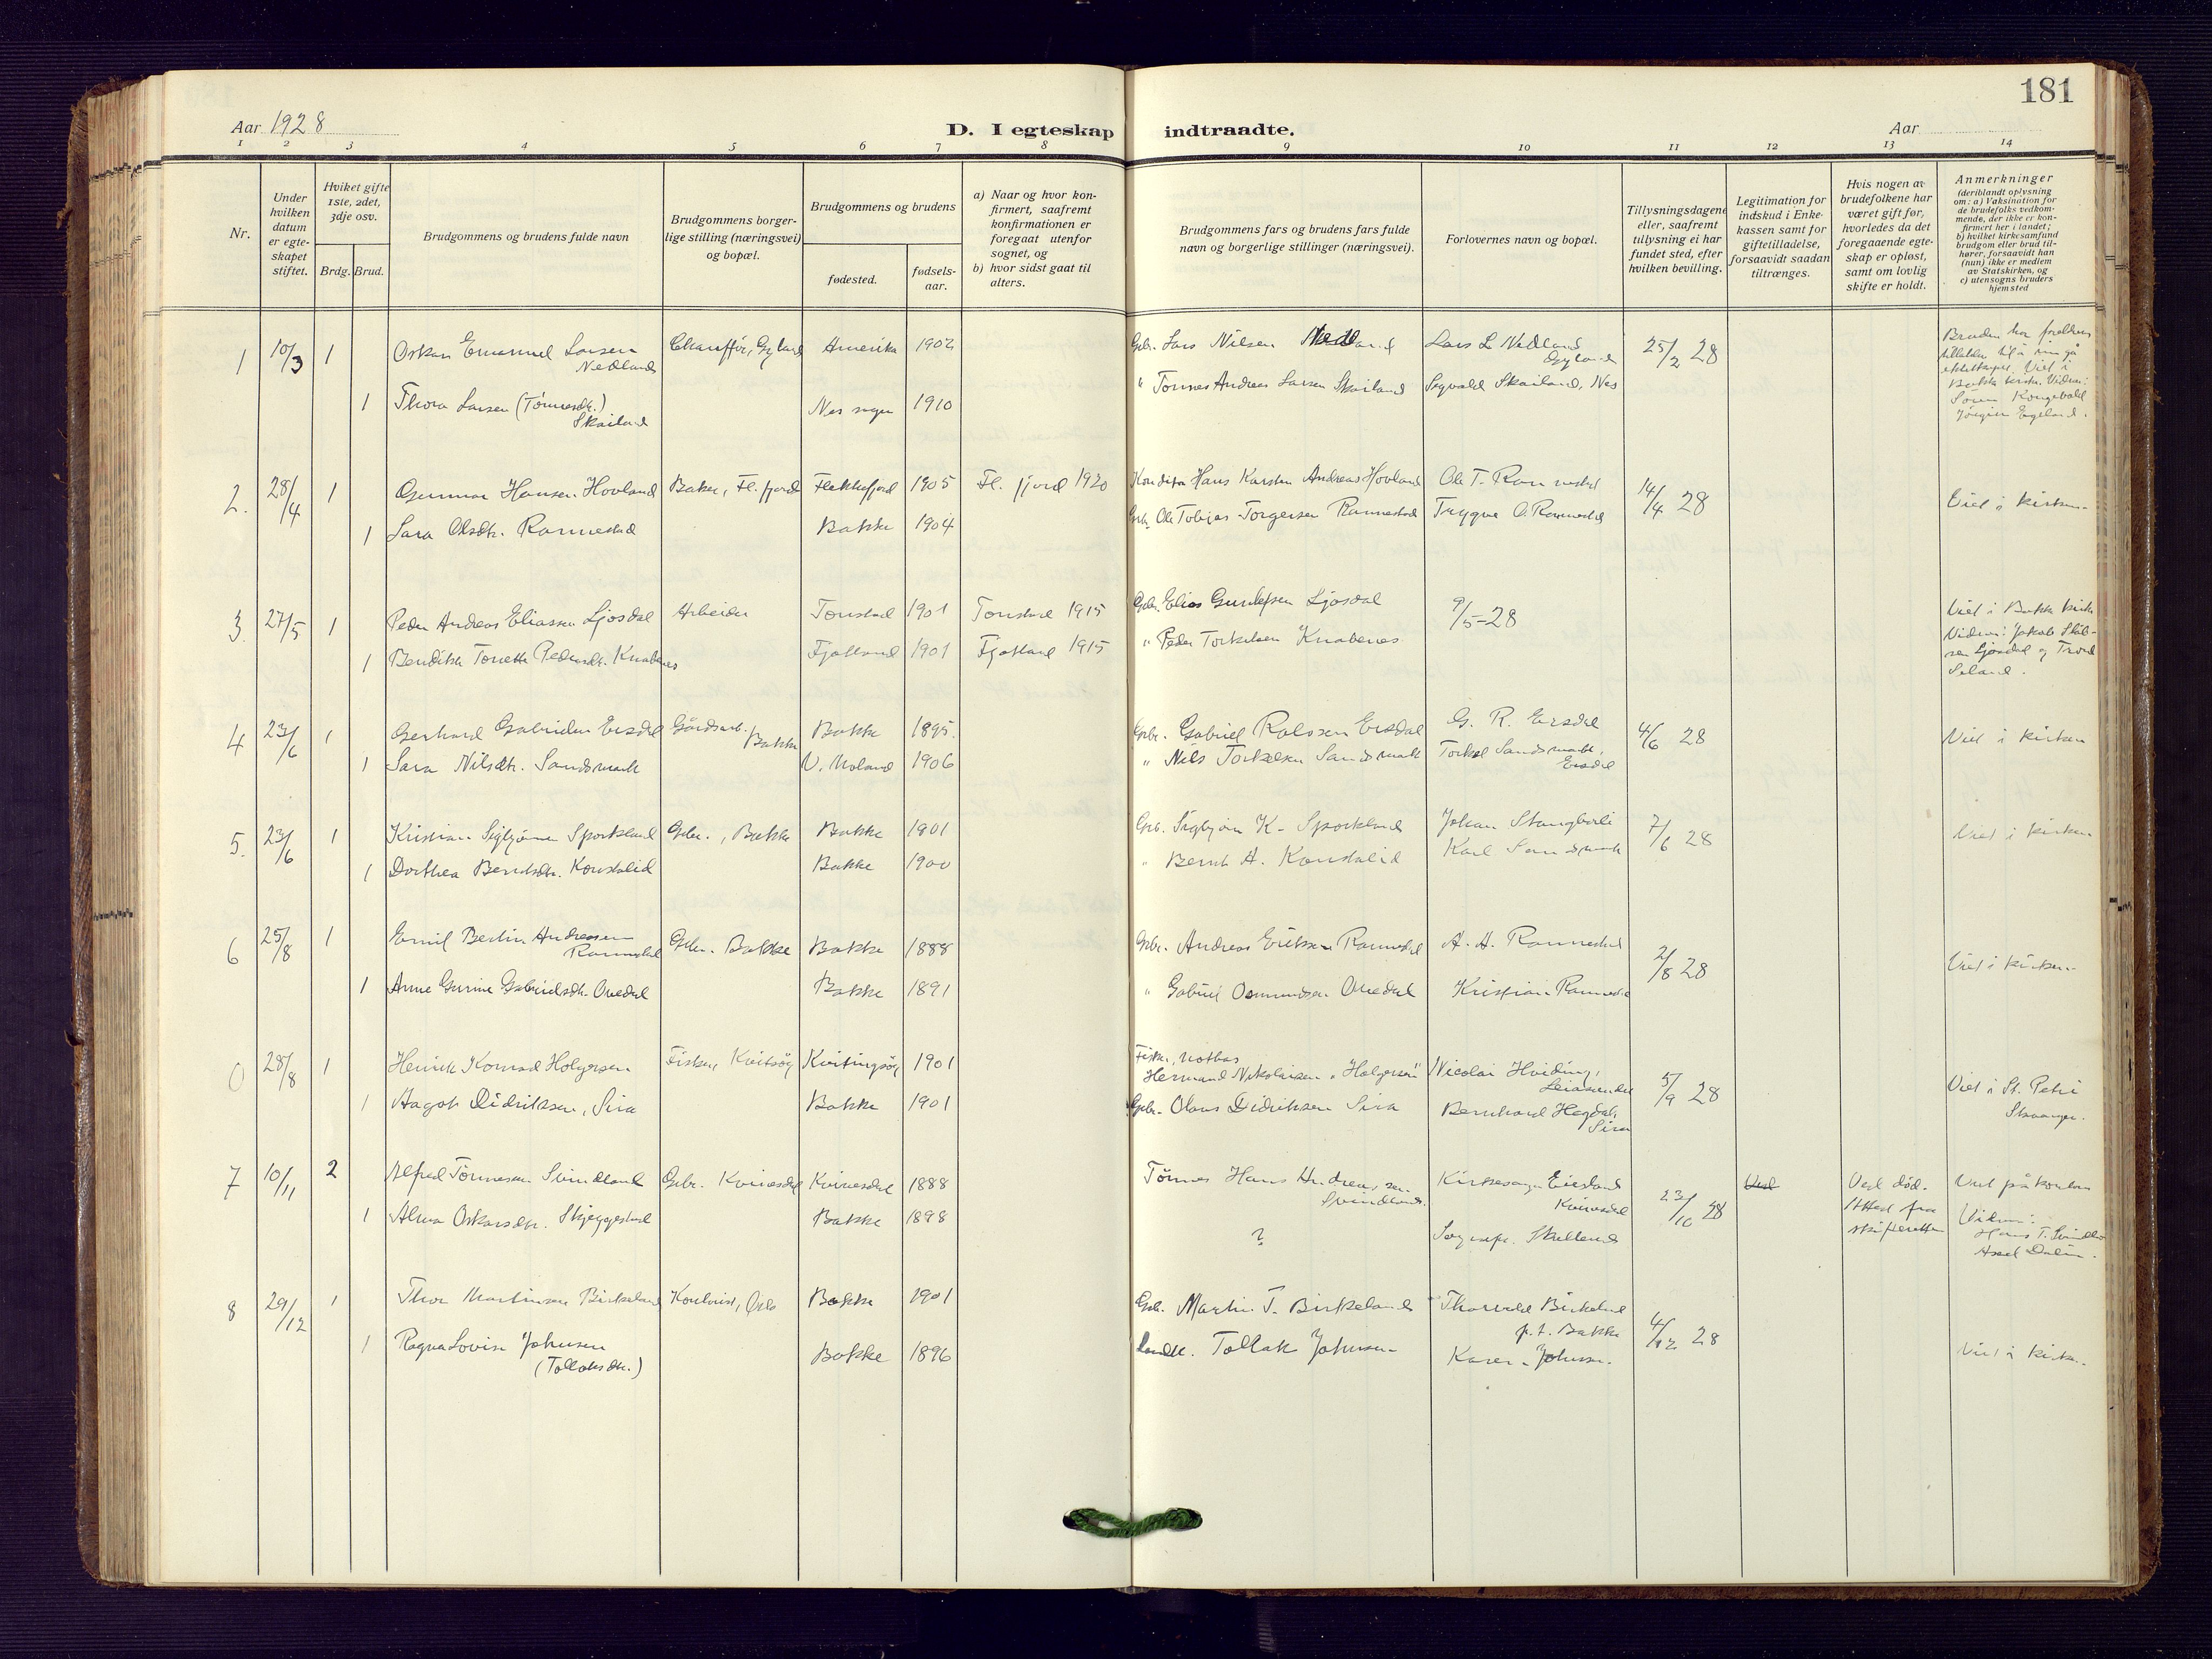 181
Aar 1928
D. I egteskap indtraadte.
Aar
1 2 3 4 5 6 7 8 9 10 11 12 13 14
Nr.
Under hvilken datum er egte-skapet stiftet.
Hviket gifte 1ste, 2det, 3dje osv.
Brdg. Brud.
Brudgommens og brudens fulde navn
Brudgommens borger-lige stilling (næringsvei) og bopæl.
Brudgommens og brudens
fødested.
fødsels-aar.
a) Naar og hvor kon-firmert, saafremt konfirmationen er foregaat utenfor sognet, og
b) hvor sidst gaat til alters.
Brudgommens fars og brudens fars fulde navn og borgerlige stillinger (næringsvei).
Forlovernes navn og bopæl.
Tillysningsdagene eller, saafremt tillysning ei har fundet sted, efter hvilken bevilling.
Legitimation for indskud i Enke-kassen samt for giftetilladelse, forsaavidt saadan tiltrænges.
Hvis nogen av brudefolkene har været gift før, hvorledes da det foregaaende egte-skap er opløst, samt om lovlig skifte er holdt.
Anmerkninger
(deriblandt oplysning om: a) Vaksination for de brudefolks vedkom-mende, der ikke er kon-firmert her i landet; b) hvilket kirkesamfund brudgom eller brud til-hører, forsaavidt han (hun) ikke er medlem av Statskirken, og c) utensogns bruders hjemsted
1 10/3 1 Oskar Emanuel Larsen Nedland Chauffør, Gyland Amerika 1902 Gbr. Lars Nilsen Nedland Lars L. Nedland Gyland 25/2 28
Bruden har foreldres tillatelse til å inngå ekteskapet. Viet i Bakke kirke. Vidner: Søren Kongevold Jørgen Egeland.
1 Thora Larsen (Tønnesdtr.) Skailand Nes sogn 1910 " Tønnes Andreas Larsen Skailand Sigvald Skailand, Nes
2. 28/4 1 Gunnar Hansen Hovland Baker, Fl.fjord Flekkefjord 1905 Fl. fjord 1920 Konditor Hans Karsten Andreas Hovland Ole T. Rannestad 14/4 28 Viet i kirken
1 Sara Olsdtr. Rannestad Bakke 1904 Gbr. Ole Tobias Torgersen Rannestad Trygve O. Rannestad
3. 27/5 1 Peder Andreas Eliassen Ljosdal Arbeider Tonstad 1901 Tonstad 1915 Gbr. Elias Gunlefsen Ljosdal 9/5-28
Viet i Bakke kirke Vidner: Jakob Ljosdal og Trond Seland.
1 Bendikte Tonette Pedersdtr. Knabenes Fjotland 1901 Fjotland 1915 " Peder Torkelsen Knabenes
4 23/6 1 Gerhard Gabrielsen Ersdal Gårdsarb. Bakke Bakke 1895. Gbr. Gabriel Rolssen Eersdal G. R. Eersdal 4/6 28 Viet i kirken
1 Sara Nilsdtr. Sandsmark 1906 " Nils Torkelsen Sandsmark Torkel Sandsmark, Eersdal
5. 23/6 1 Kristian Sigbjørnsen Sporkland Gbr., Bakke Bakke 1901 Gbr. Sigbjørn K. Sporkland Johan Stangborli 7/6 28 Viet i kirken
1 Dorthea Berntsdtr. Konstalid Bakke 1900 " Bernt A. Konstalid Karl Sandsmark
6 25/8 1 Emil Bertin Andreassen Rannestad Gbr. Bakke Bakke 1888 Gbr. Andreas Eriksen Rannestad A. A. Rannestad 2/8 28 Viet i kirken
1 Anne Gurine Gabrielsdtr. Ovedal Bakke 1891 " Gabriel Osmundsen Ovedal Kristian Rannestad
0 28/8 1 Henrik Konrad Holgersen Fisker, Kvitsøy Kvitingsøy 1901 Fisker, notbas Hermand Nikolaisen "Holgersen" Nicolai Hviding, 5/9 28 Viet i St. Petri Stavanger.
1 Aagot Didriksen, Sira Bakke 1901 Gbr. Olaus Didriksen Sira Bernhard Hegdal, Sira
7 10/11 2 Alfred Tønnesen Svindland Gbr. Kvinesdal Kvinesdal 1888 Tønnes Hans Andreassen Svindland. Kirkesanger Eiesland Kvinesdal 23/10 28 Ved død. Attest fra skifteretten Viet på kontoret Vidner: Hans T. Svindland Axel Dalen.
1 Alma Oskarsdtr. Skjeggestad Bakke 1898 ? Sognepr. Skulland
8 29/12 1 Thor Martinsen Birkeland Kontorist, Oslo Bakke 1901 Gbr. Martin T. Birkeland Thorvald Birkeland p.t. Bakke 4/12 28 Viet i kirken
1 Ragna Lovise Johnsen (Tollaksdtr.) Bakke 1896 landh. Tollak Johnsen Karen Johnsen.